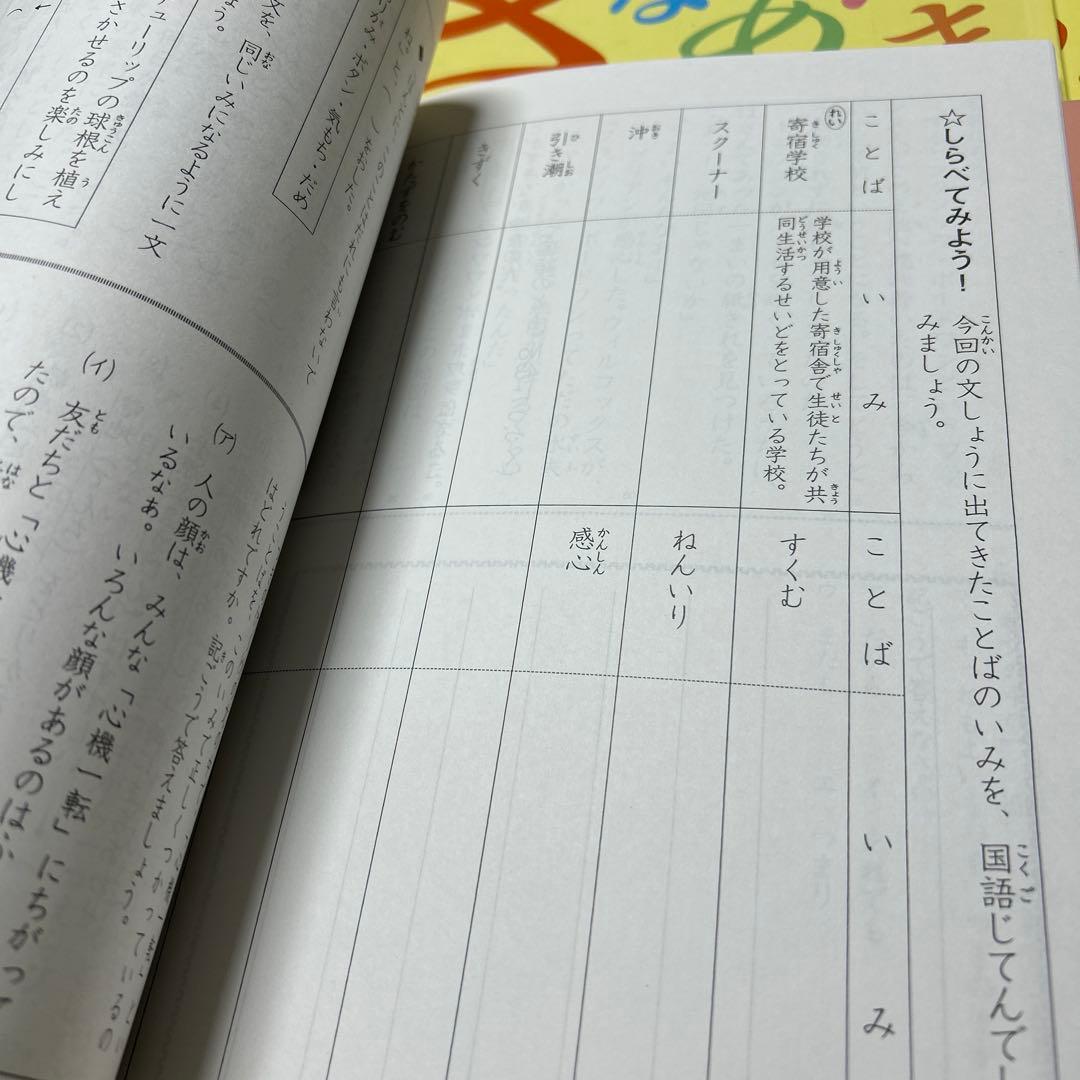 ☆しらべてみよう！
今回の文しょうに出てきたことばのいみを、国語じてんで
みましょう。
ことば
いみ
ことば
いみ
れい
寄宿学校
学校が用意した寄宿舎で生徒たちが共
同生活するせいどをとっている学校。
すくむ
スクーナー
ねんいり
沖
感心
引き潮
きずく
かたずをのむ
りがみ・ボタン・気もち・ため
文を、同じいみになるように一文
よう。
チューリップの球根を植え
さかせるのを楽しみにし
はどれですか。記ごうで答えましょう。
(ア)
人の顔は、みんな「心機一転」にちがって
いるなぁ。いろんな顔があるのは、
(イ)
友だちと「心機
たので、